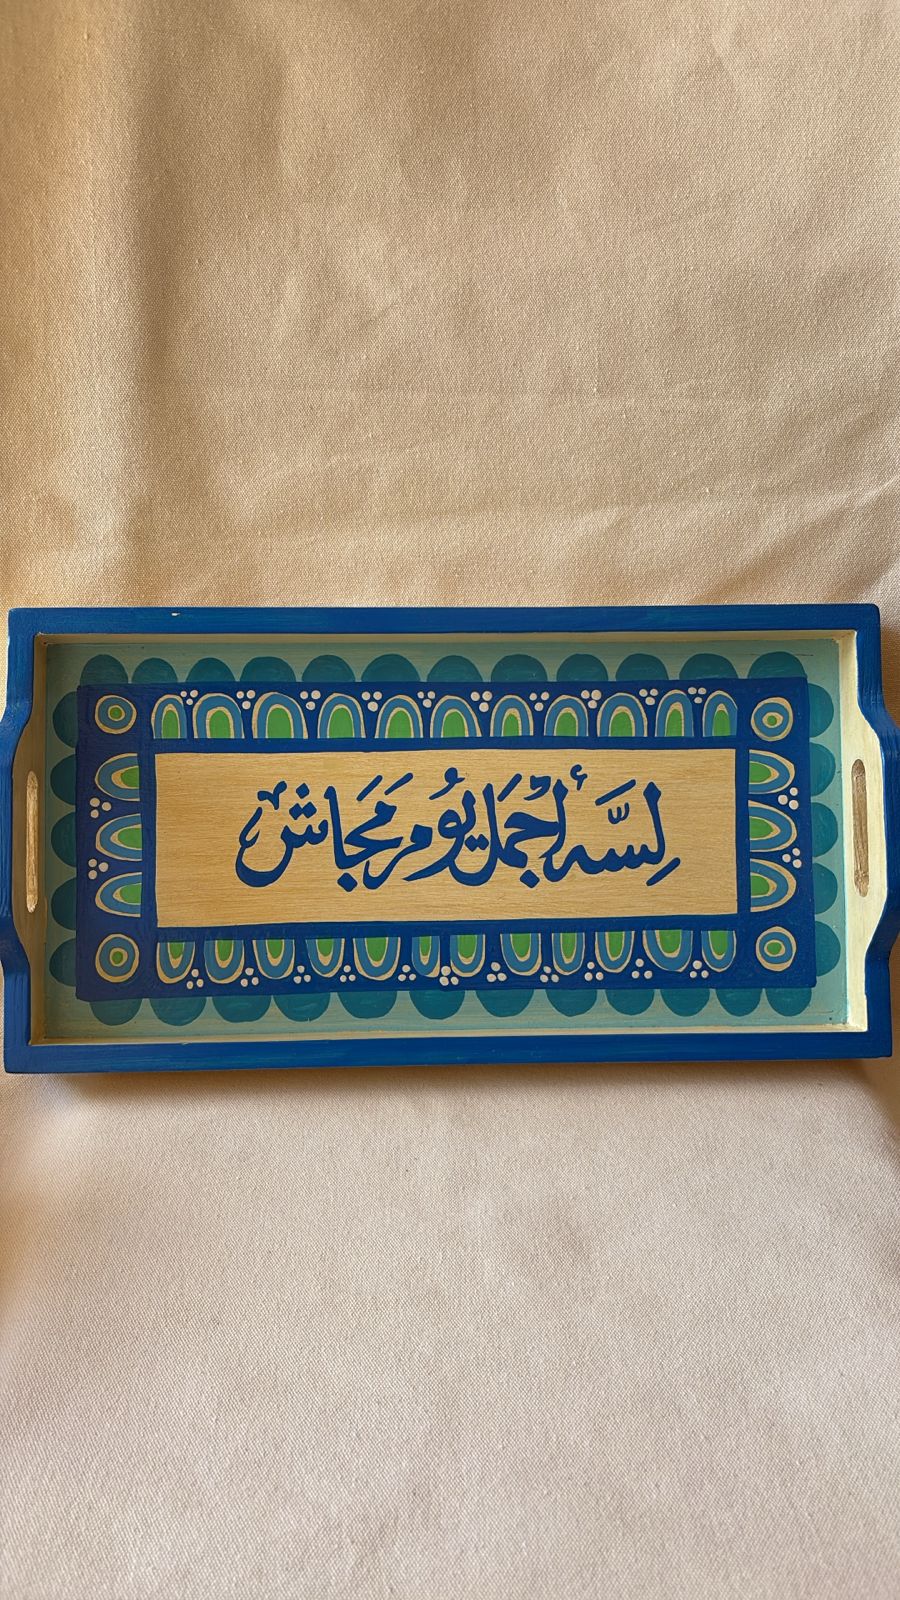 لِسَّه أجْمَل يُوم مَجَاش